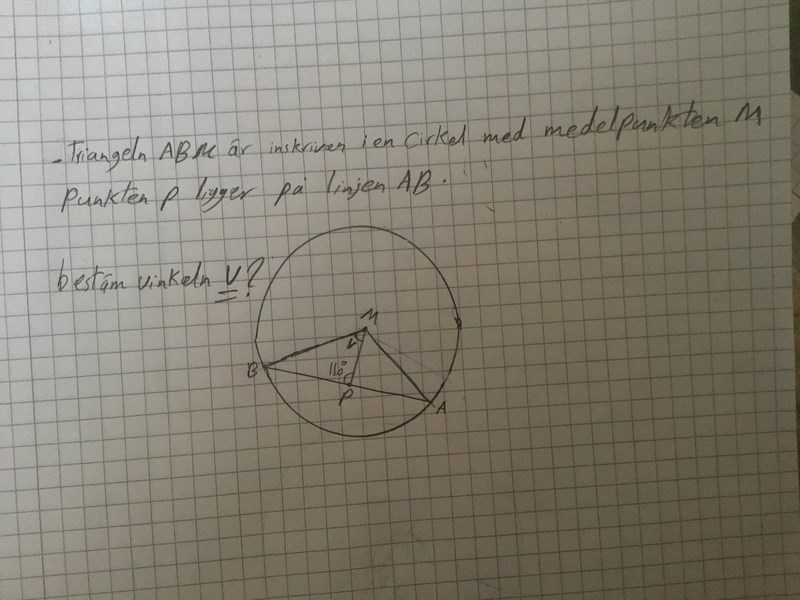 - Triangeln ABM är inskriven i en Cirkel med medelpunkten M
Punkten P ligger på linjen AB.
bestäm vinkeln V?
M
V
B
110°
P
A